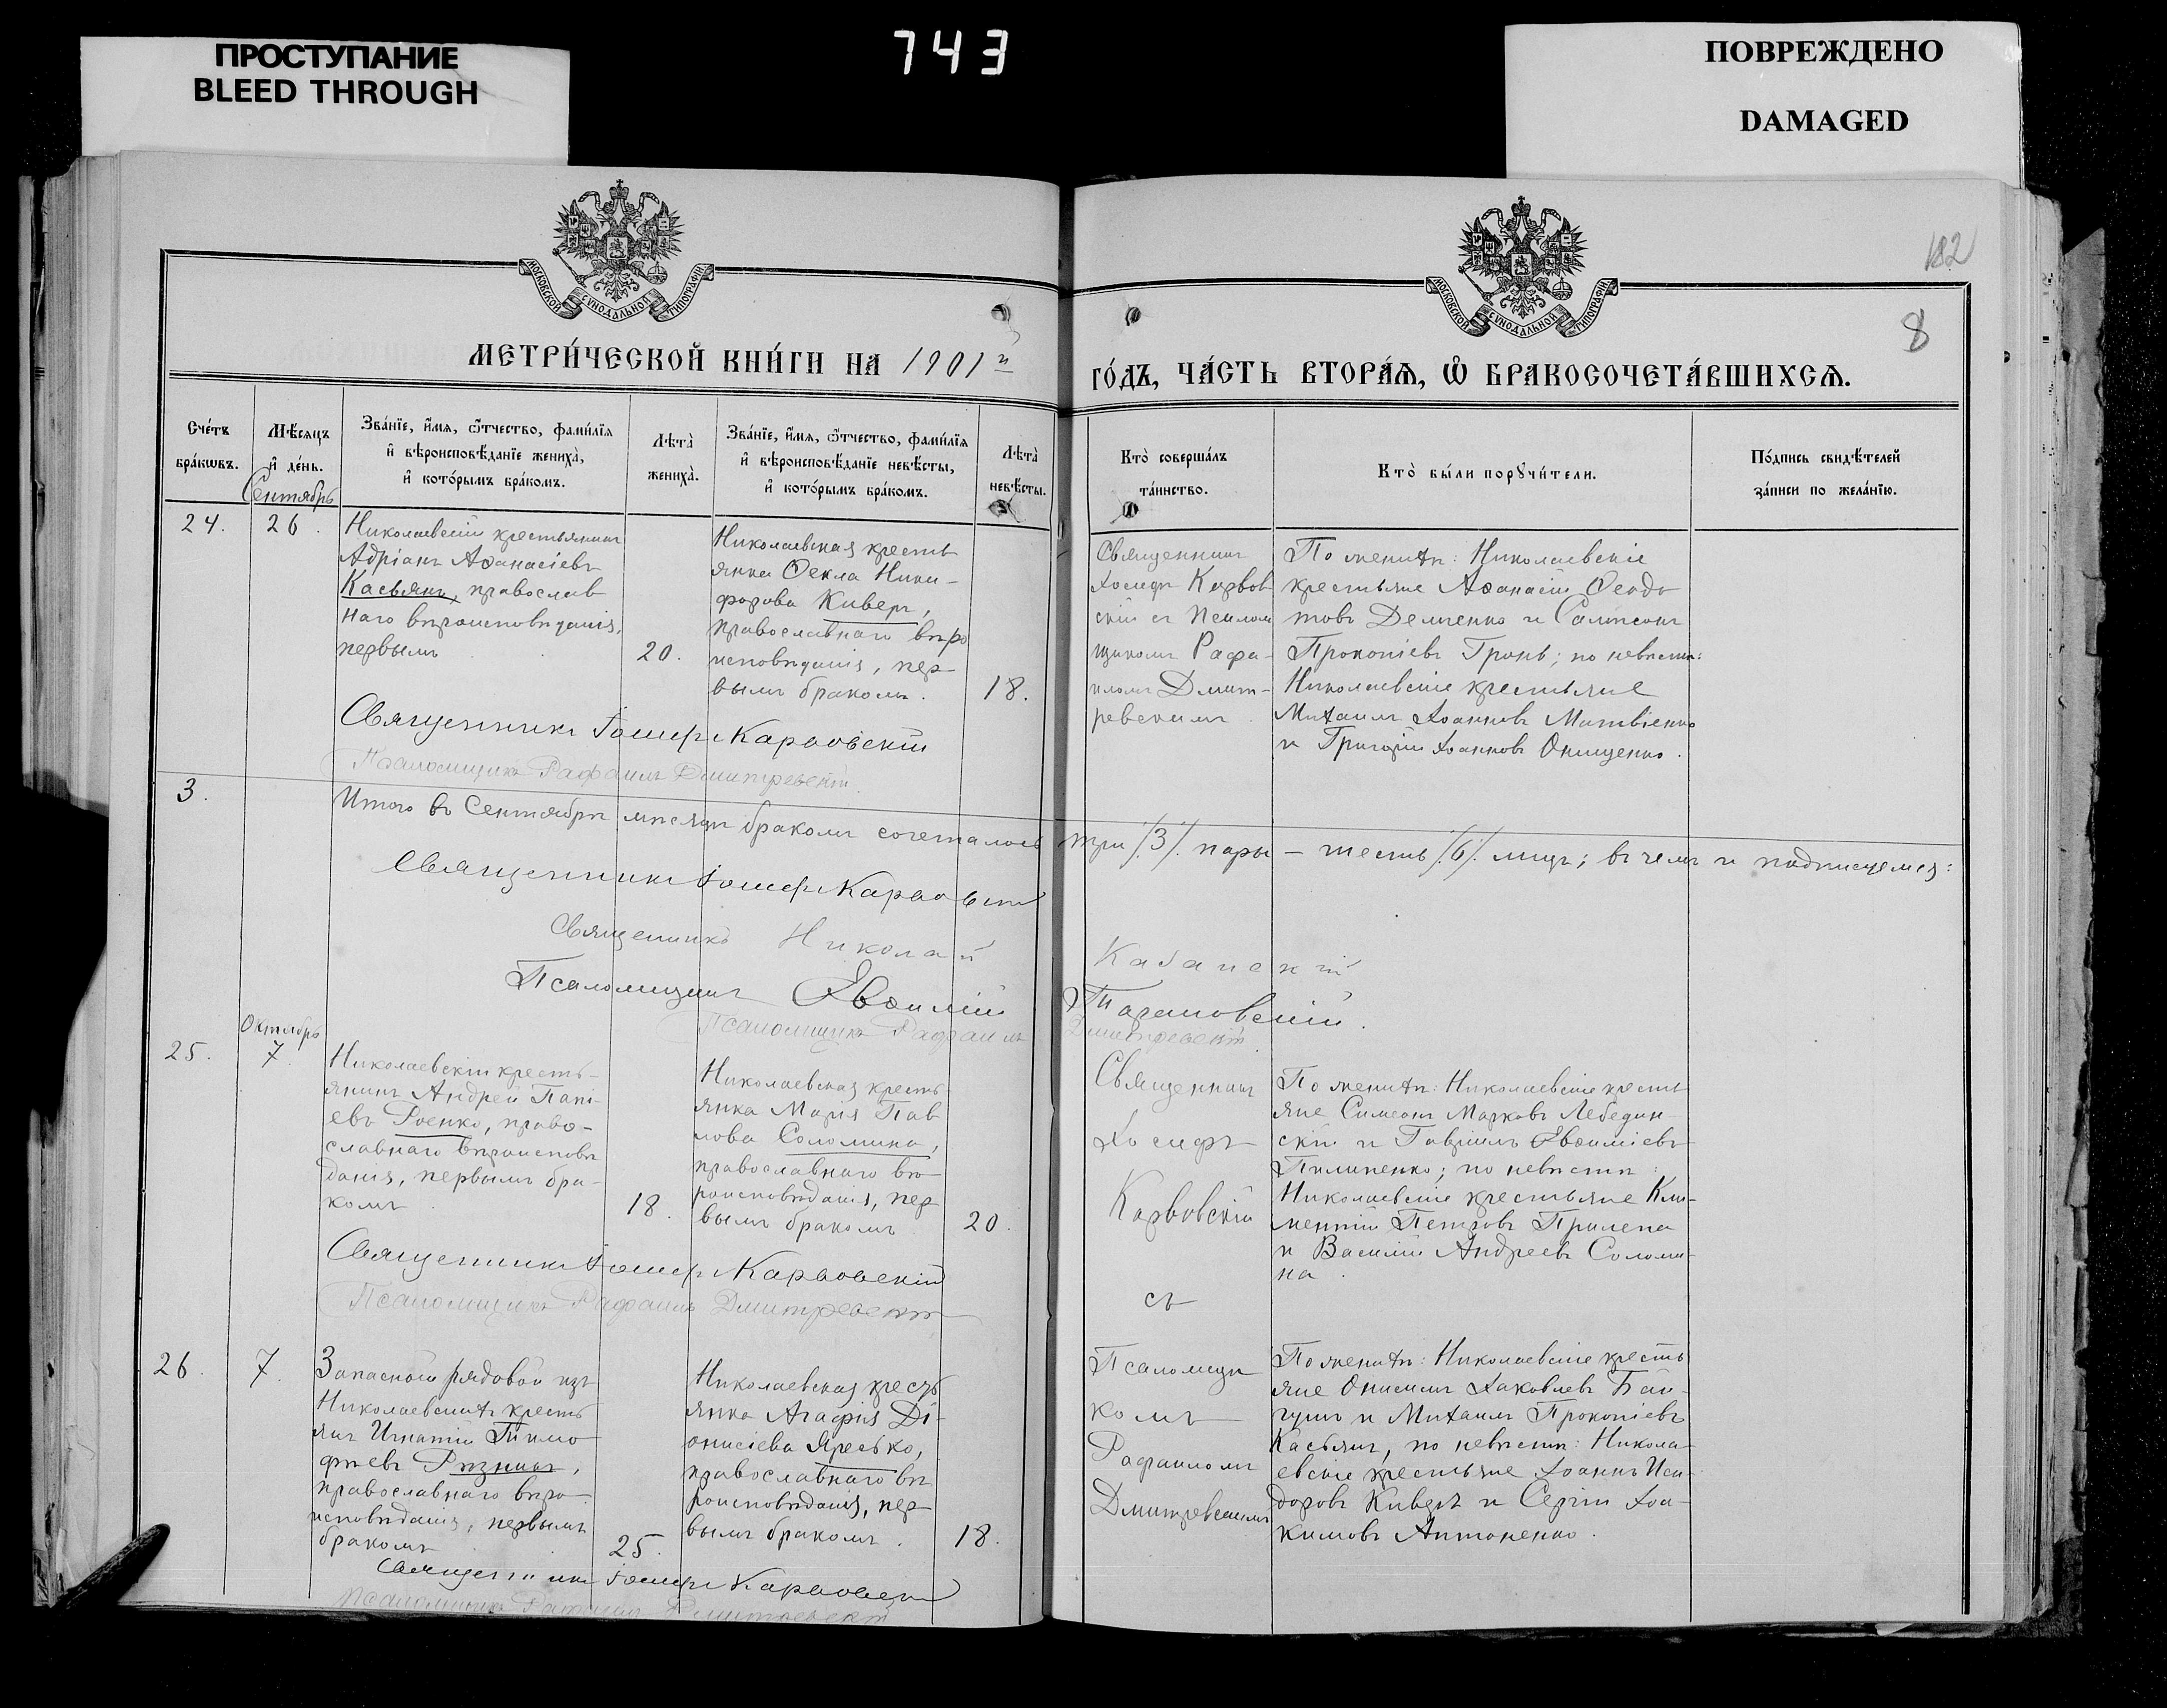 ПРОСТУПАНИЕ
BLEED THROUGH
743
ПОВРЕЖДЕНО
DAMAGED
МОСКОВСКОЙ СУНОДАЛЬНОЙ ТИПОГРАФІИ
МОСКОВСКОЙ СУНОДАЛЬНОЙ ТИПОГРАФІИ
182
8
МЕТРИ́ЧЕСКОЙ КНИ́ГИ НА 1901 й
ГО́ДЪ, ЧА́СТЬ ВТОРА́Ѧ, Ѡ҆ БРАКОСОЧЕТА́ВШИХСѦ.
Сче́тъ
бра́кѡвъ.
Мѣ́сѧцъ
и҆ де́нь.
Зва́нїе, и҆́мѧ, ѻ҆́тчество, фами́лїѧ
и҆ вѣроисповѣ́данїе жениха̀,
и҆ кото́рымъ бра́комъ.
Лѣ́та
жениха̀.
Зва́нїе, и҆́мѧ, ѻ҆́тчество, фами́лїѧ
и҆ вѣроисповѣ́данїе невѣ́сты,
и҆ кото́рымъ бра́комъ.
Лѣ́та
невѣ́сты.
Кто̀ соверша́лъ
та́инство.
Кто̀ бы́ли порꙋчи́тели.
По́дпись свидѣ́телей
за́писи по жела́нїю.
Сентябрь
24.
26.
Николаевскій крестьянинъ
Адріанъ Аѳанасіевъ
Касьянъ, православ
наго вѣроисповѣданія,
первымъ
20.
Николаевская кресть
янка Ѳекла Ники-
форова Киверъ,
православнаго вѣро
исповѣданія, пер-
вымъ бракомъ.
18.
Священникъ
Іосифъ Карвов
скій съ Псалом
щикомъ Рафа-
иломъ Дмит-
ревскимъ.
По женихѣ: Николаевскіе
крестьяне Аѳанасій Ѳеодо
товъ Демченко и Сампсонъ
Прокопіевъ Гронь; по невѣстѣ:
Николаевскіе крестьяне
Михаилъ Іоанновъ Матвіенко
и Григорій Іоанновъ Онищенко.
Священникъ Іосифъ Карвовскій
Псаломщикъ Рафаилъ Дмитревскій.
3.
Итого въ Сентябрѣ мѣсяцѣ бракомъ сочеталось три /3/. пары – шесть /6/. лицъ; въ чемъ и подписуемся:
Священникъ Іосифъ Карвовскій
Священникъ Николай Казанскій
Псаломщикъ Евѳимій Тарановскій.
Псаломщикъ Рафаилъ Дмитревскій
Октябрь
25.
7.
Николаевскій кресть-
янинъ Андрей Папі-
евъ Роенко, право-
славнаго вѣроисповѣ
данія, первымъ бра-
комъ
18.
Николаевская кресть
янка Марія Пав
лова Соломина,
православнаго вѣ-
роисповѣданія, пер
вымъ бракомъ
20.
Священникъ
Іосифъ
Карвовскій
съ
По женихѣ: Николаевскіе кресть
яне Симеонъ Марковъ Лебедин-
скій и Гавріилъ Евѳиміевъ
Пилипенко; по невѣстѣ:
Николаевскіе крестьяне Кли-
ментій Петровъ Прилепа
и Василій Андреевъ Соломи-
на.
Священникъ Іосифъ Карвовскій
Псаломщикъ Рафаилъ Дмитревскій
26.
7.
Запасной рядовой изъ
Николаевскихъ кресть
янъ Игнатій Тимо
фѣевъ Рѣзникъ,
православнаго вѣро
исповѣданія, первымъ
бракомъ
25.
Николаевская кресть
янка Агафія Ді-
онисіева Яресько,
православнаго вѣ
роисповѣданія, пер
вымъ бракомъ.
18.
Псаломщи
комъ
Рафаиломъ
Дмитревскимъ
По женихѣ: Николаевскіе кресть
яне Онисимъ Іаковлевъ
и Михаилъ Прокопіевъ
Касьянъ, по невѣстѣ: Никола-
евскіе крестьяне Іоаннъ Иси-
доровъ Киверъ и Сергій Іоа-
кимовъ Антоненко.
Священникъ Іосифъ Карвовскій
Псаломщикъ Рафаилъ Дмитревскій